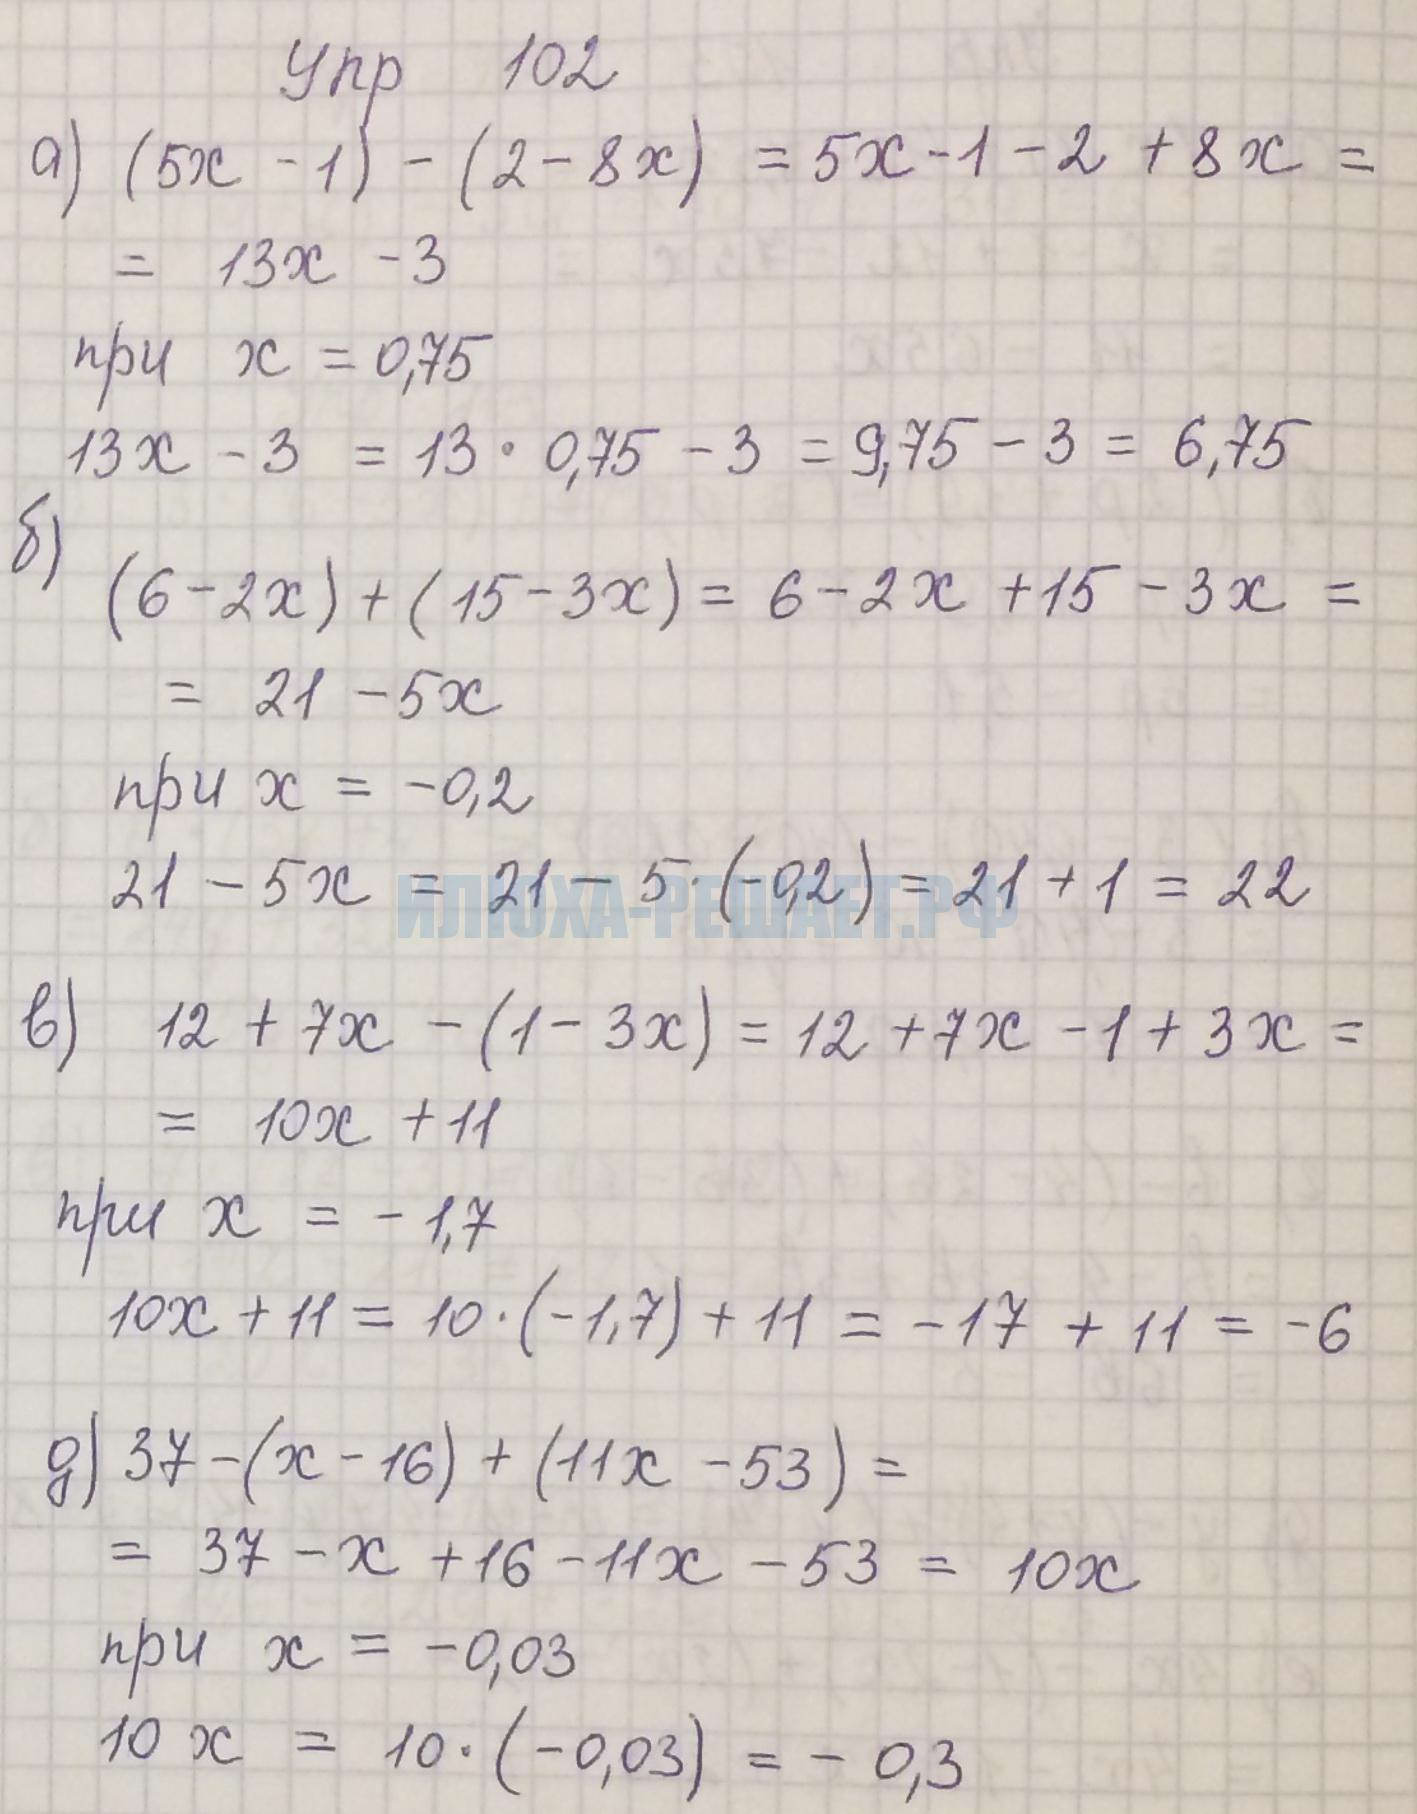 Упр 102
а) (5x - 1) - (2 - 8x) = 5x - 1 - 2 + 8x =
= 13x - 3
при x = 0,75
13x - 3 = 13 · 0,75 - 3 = 9,75 - 3 = 6,75
б)
(6 - 2x) + (15 - 3x) = 6 - 2x + 15 - 3x =
= 21 - 5x
при x = -0,2
21 - 5x = 21 - 5 · (-0,2) = 21 + 1 = 22
ИЛЮХА-РЕШАЕТ.РФ
в) 12 + 7x - (1 - 3x) = 12 + 7x - 1 + 3x =
= 10x + 11
при x = -1,7
10x + 11 = 10 · (-1,7) + 11 = -17 + 11 = -6
д) 37 - (x - 16) + (11x - 53) =
= 37 - x + 16 - 11x - 53 = 10x
при x = -0,03
10x = 10 · (-0,03) = -0,3